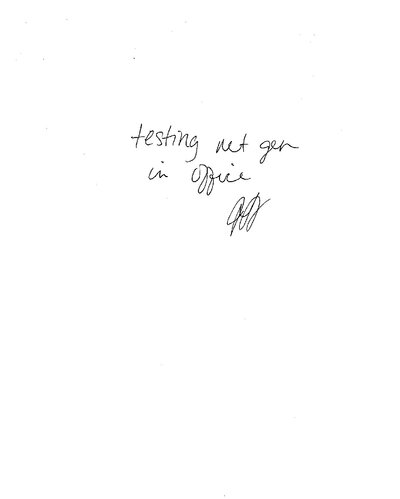 testing net gen
in office